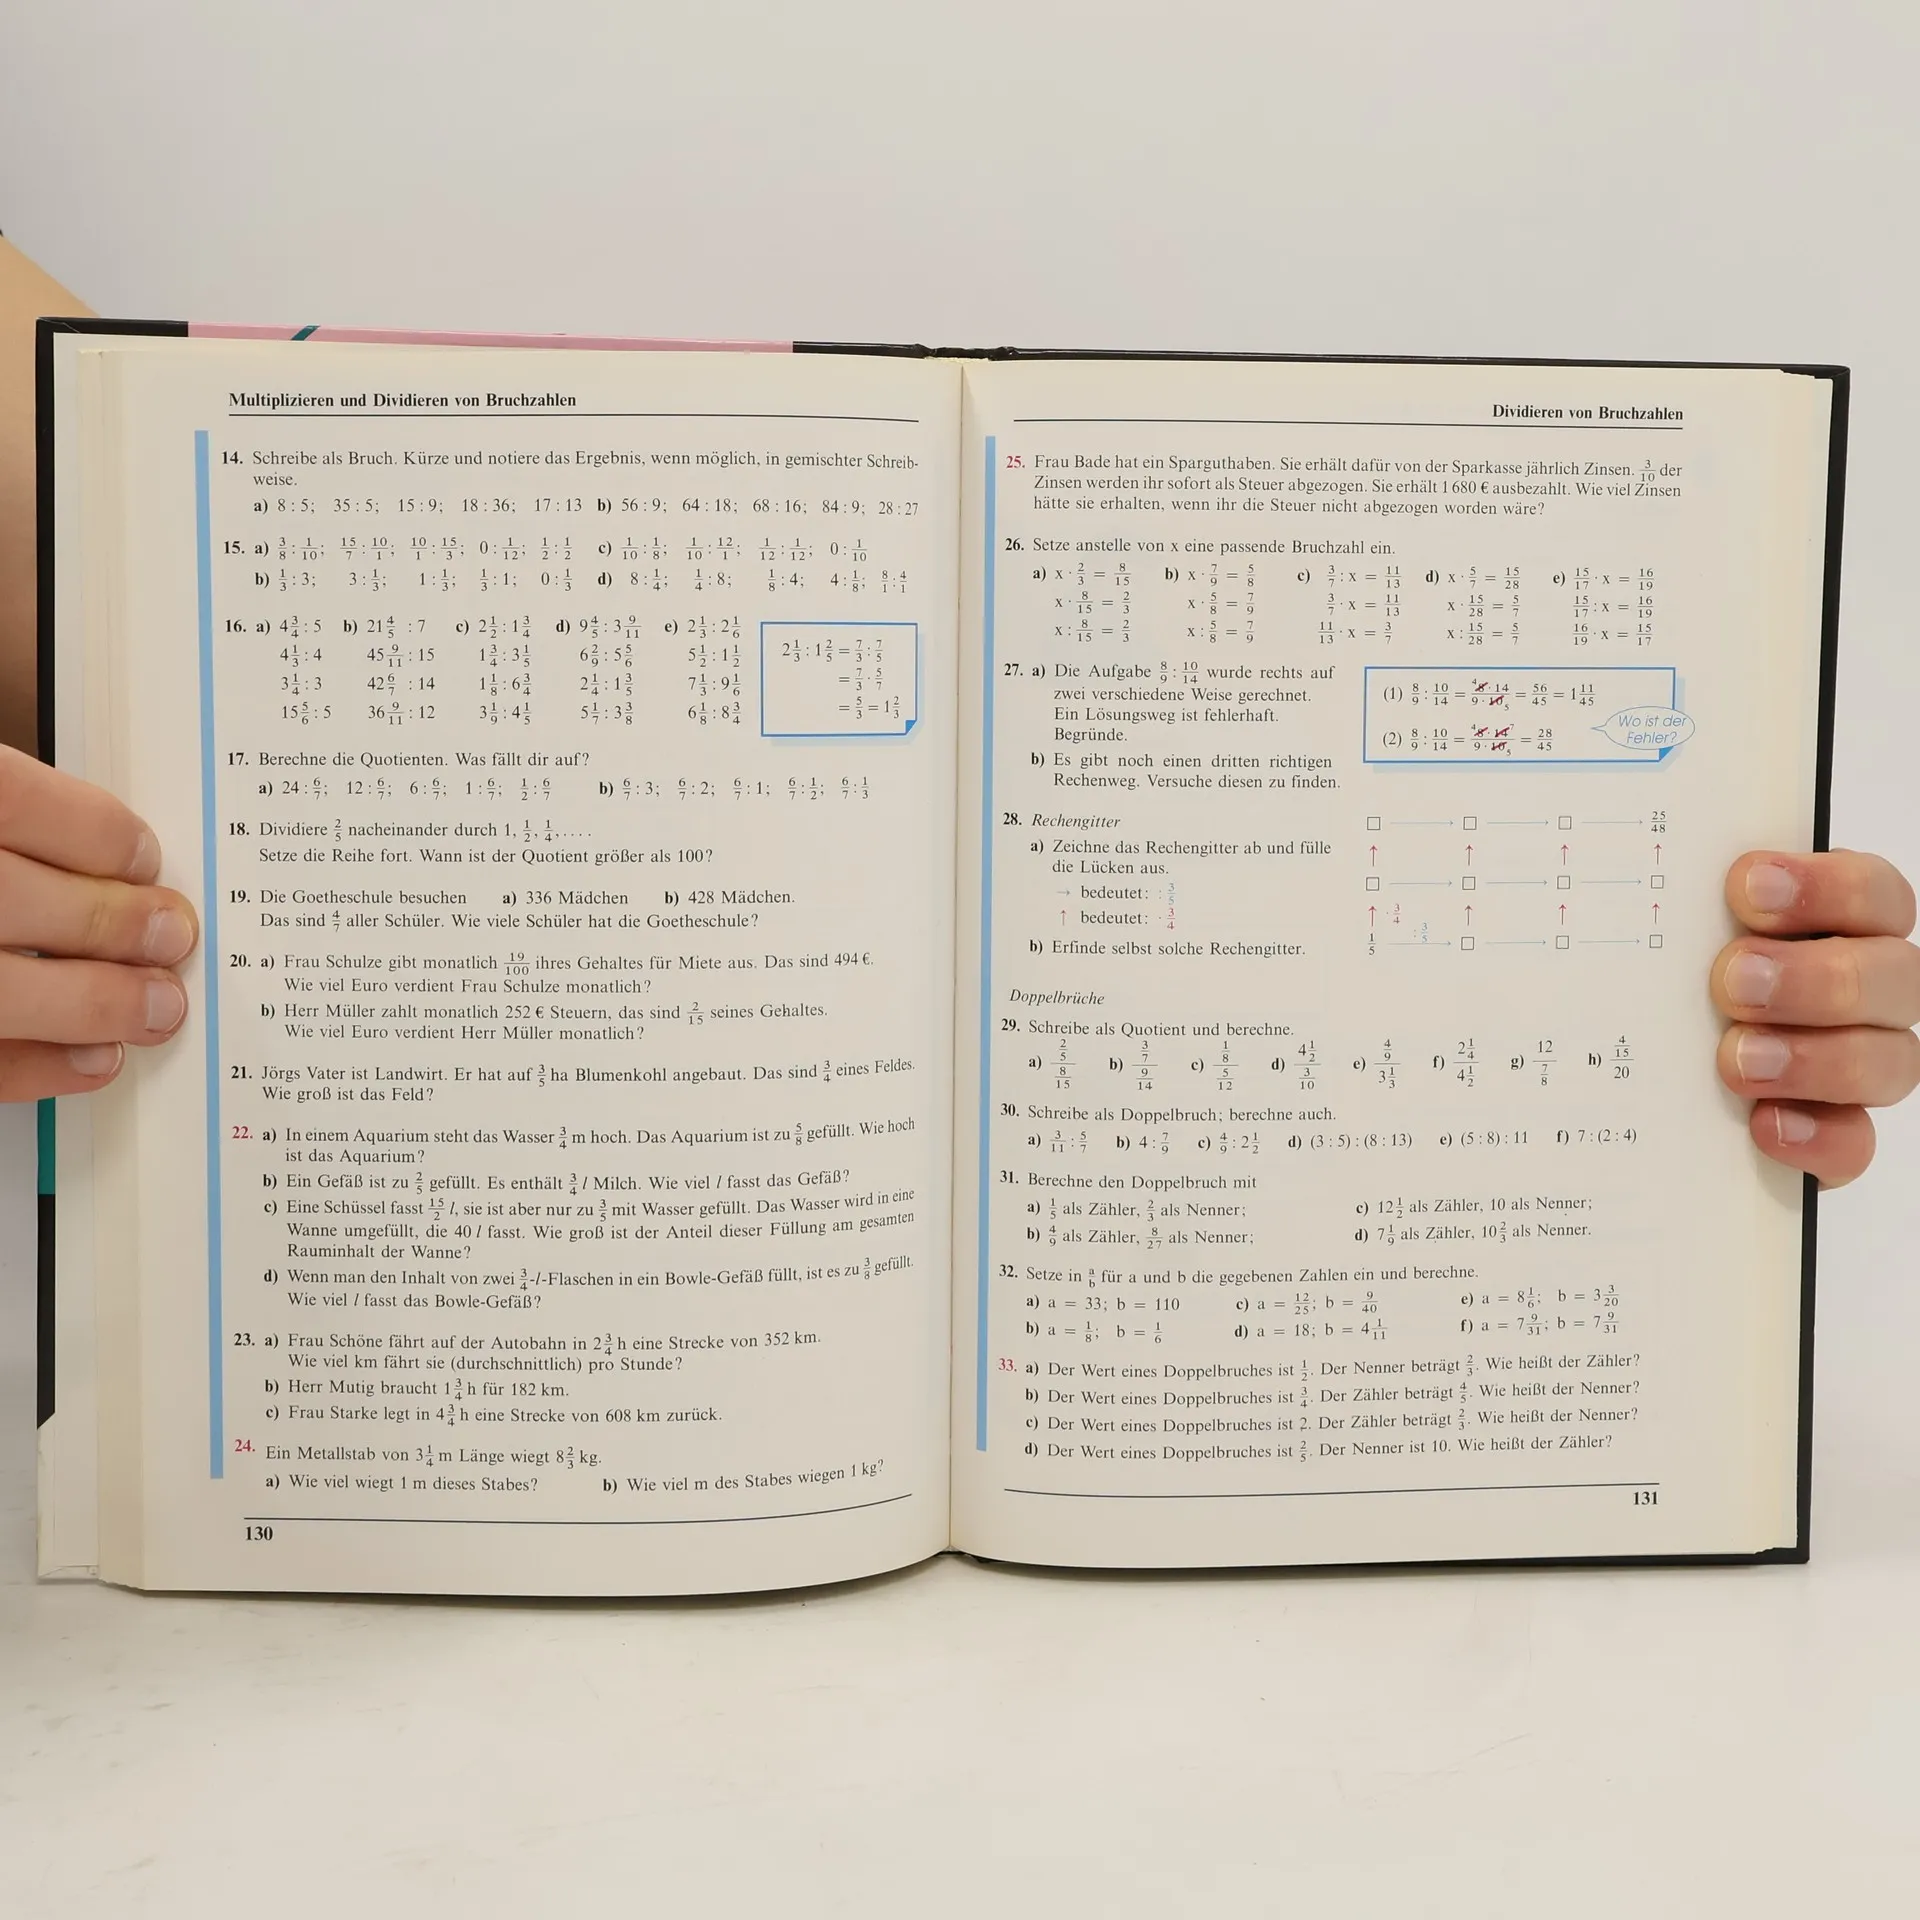 Multiplizieren und Dividieren von Bruchzahlen
14. Schreibe als Bruch. Kürze und notiere das Ergebnis, wenn möglich, in gemischter Schreib-
weise.
a) 8 : 5; 35 : 5; 15 : 9; 18 : 36; 17 : 13 b) 56 : 9; 64 : 18; 68 : 16; 84 : 9; 28 : 27
15. a) 3/8 : 1/10; 15/7 : 10/1; 10/1 : 15/3; 0 : 1/12; 1/2 : 1/2 c) 1/10 : 1/8; 1/10 : 12/1; 1/12 : 1/12; 0 : 1/10
b) 1/3 : 3; 3 : 1/3; 1 : 1/3; 1/3 : 1; 0 : 1/3 d) 8 : 1/4; 1/4 : 8; 1/8 : 4; 4 : 1/8; 8/1 : 4/1
16. a) 4 3/4 : 5 b) 21 4/5 : 7 c) 2 1/2 : 1 3/4 d) 9 4/5 : 3 9/11 e) 2 1/3 : 2 1/6
4 1/3 : 4 45 9/11 : 15 1 3/4 : 3 1/5 6 2/9 : 5 5/6 5 1/2 : 1 1/2
3 1/4 : 3 42 6/7 : 14 1 1/8 : 6 3/4 2 1/4 : 1 3/5 7 1/3 : 9 1/6
15 5/6 : 5 36 9/11 : 12 3 1/9 : 4 1/5 5 1/7 : 3 3/8 6 1/8 : 8 3/4
2 1/3 : 1 2/5 = 7/3 : 7/5
= 7/3 · 5/7
= 5/3 = 1 2/3
17. Berechne die Quotienten. Was fällt dir auf?
a) 24 : 6/7; 12 : 6/7; 6 : 6/7; 1 : 6/7; 1/2 : 6/7 b) 6/7 : 3; 6/7 : 2; 6/7 : 1; 6/7 : 1/2; 6/7 : 1/3
18. Dividiere 2/5 nacheinander durch 1, 1/2, 1/4, . . . .
Setze die Reihe fort. Wann ist der Quotient größer als 100?
19. Die Goetheschule besuchen a) 336 Mädchen b) 428 Mädchen.
Das sind 4/7 aller Schüler. Wie viele Schüler hat die Goetheschule?
20. a) Frau Schulze gibt monatlich 19/100 ihres Gehaltes für Miete aus. Das sind 494 €.
Wie viel Euro verdient Frau Schulze monatlich?
b) Herr Müller zahlt monatlich 252 € Steuern, das sind 2/15 seines Gehaltes.
Wie viel Euro verdient Herr Müller monatlich?
21. Jörgs Vater ist Landwirt. Er hat auf 3/5 ha Blumenkohl angebaut. Das sind 3/4 eines Feldes.
Wie groß ist das Feld?
22. a) In einem Aquarium steht das Wasser 3/4 m hoch. Das Aquarium ist zu 5/8 gefüllt. Wie hoch
ist das Aquarium?
b) Ein Gefäß ist zu 2/5 gefüllt. Es enthält 3/4 l Milch. Wie viel l fasst das Gefäß?
c) Eine Schüssel fasst 15/2 l, sie ist aber nur zu 3/5 mit Wasser gefüllt. Das Wasser wird in eine
Wanne umgefüllt, die 40 l fasst. Wie groß ist der Anteil dieser Füllung am gesamten
Rauminhalt der Wanne?
d) Wenn man den Inhalt von zwei 3/4-l-Flaschen in ein Bowle-Gefäß füllt, ist es zu 3/8 gefüllt.
Wie viel l fasst das Bowle-Gefäß?
23. a) Frau Schöne fährt auf der Autobahn in 2 3/4 h eine Strecke von 352 km.
Wie viel km fährt sie (durchschnittlich) pro Stunde?
b) Herr Mutig braucht 1 3/4 h für 182 km.
c) Frau Starke legt in 4 3/4 h eine Strecke von 608 km zurück.
24. Ein Metallstab von 3 1/4 m Länge wiegt 8 2/3 kg.
a) Wie viel wiegt 1 m dieses Stabes? b) Wie viel m des Stabes wiegen 1 kg?
130
Dividieren von Bruchzahlen
25. Frau Bade hat ein Sparguthaben. Sie erhält dafür von der Sparkasse jährlich Zinsen. 3/10 der
Zinsen werden ihr sofort als Steuer abgezogen. Sie erhält 1 680 € ausbezahlt. Wie viel Zinsen
hätte sie erhalten, wenn ihr die Steuer nicht abgezogen worden wäre?
26. Setze anstelle von x eine passende Bruchzahl ein.
a) x · 2/3 = 8/15 b) x · 7/9 = 5/8 c) 3/7 : x = 11/13 d) x · 5/7 = 15/28 e) 15/17 · x = 16/19
x · 8/15 = 2/3 x · 5/8 = 7/9 3/7 · x = 11/13 x · 15/28 = 5/7 15/17 : x = 16/19
x : 8/15 = 2/3 x : 5/8 = 7/9 11/13 · x = 3/7 x : 15/28 = 5/7 16/19 · x = 15/17
27. a) Die Aufgabe 8/9 : 10/14 wurde rechts auf
zwei verschiedene Weise gerechnet.
Ein Lösungsweg ist fehlerhaft.
Begründe.
b) Es gibt noch einen dritten richtigen
Rechenweg. Versuche diesen zu finden.
(1) 8/9 : 10/14 = 4 8 · 14 / 9 · 10 5 = 56/45 = 1 11/45
(2) 8/9 : 10/14 = 4 8 · 14 7 / 9 · 10 5 = 28/45
Wo ist der
Fehler?
28. Rechengitter
a) Zeichne das Rechengitter ab und fülle
die Lücken aus.
→ bedeutet: : 3/5
↑ bedeutet: · 3/4
b) Erfinde selbst solche Rechengitter.
□ → □ → □ → 25/48
↑ ↑ ↑ ↑
□ → □ → □ → □
↑ · 3/4 ↑ ↑ ↑
1/5 : 3/5 → □ → □ → □
Doppelbrüche
29. Schreibe als Quotient und berechne.
a) (2/5)/(8/15) b) (3/7)/(9/14) c) (1/8)/(5/12) d) (4 1/2)/(3/10) e) (4/9)/(3 1/3) f) (2 1/4)/(4 1/2) g) 12/(7/8) h) (4/15)/20
30. Schreibe als Doppelbruch; berechne auch.
a) 3/11 : 5/7 b) 4 : 7/9 c) 4/9 : 2 1/2 d) (3 : 5) : (8 : 13) e) (5 : 8) : 11 f) 7 : (2 : 4)
31. Berechne den Doppelbruch mit
a) 1/5 als Zähler, 2/3 als Nenner; c) 12 1/2 als Zähler, 10 als Nenner;
b) 4/9 als Zähler, 8/27 als Nenner; d) 7 1/9 als Zähler, 10 2/3 als Nenner.
32. Setze in a/b für a und b die gegebenen Zahlen ein und berechne.
a) a = 33; b = 110 c) a = 12/25; b = 9/40 e) a = 8 1/6; b = 3 3/20
b) a = 1/8; b = 1/6 d) a = 18; b = 4 1/11 f) a = 7 9/31; b = 7 9/31
33. a) Der Wert eines Doppelbruches ist 1/2. Der Nenner beträgt 2/3. Wie heißt der Zähler?
b) Der Wert eines Doppelbruches ist 3/4. Der Zähler beträgt 4/5. Wie heißt der Nenner?
c) Der Wert eines Doppelbruches ist 2. Der Zähler beträgt 2/3. Wie heißt der Nenner?
d) Der Wert eines Doppelbruches ist 2/5. Der Nenner ist 10. Wie heißt der Zähler?
131